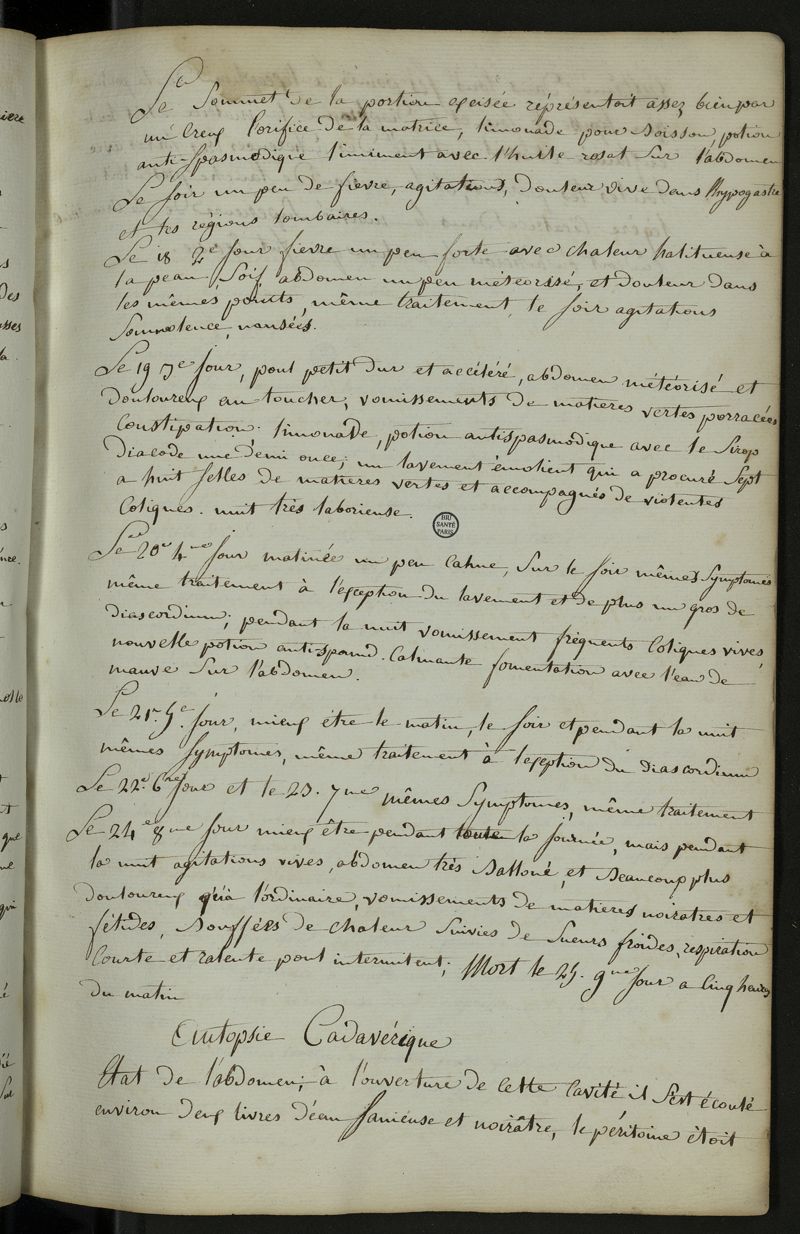 Le Sommet de la portion excisée réprésentoit assez bien par
un Creux l'orifice de la matrice, limonade pour boisson, potion
anti-spasmodique liniment avec l'huile rosat sur l'abdomen
Le soir un peu de fievre, agitations, douleur vive dans l'hypogastre
et les régions lombaires.
Le 18 2e jour fievre un peu forte avec chaleur halitueuse à
la peau, soif, abdomen un peu météorisé, et douleur dans
les mêmes points, même traitement, le soir agitations
Somnolence, nausées.
Le 19 3e jour, poul petit dur et accéléré, abdomen météorisé et
douloureux au toucher, vomissements de matieres vertes porracées
Constipation. limonade, potion antispasmodique avec le Sirop
Diacode une demi once; un lavement émolient qui a procuré Sept
a huit selles de matieres vertes et accompagnés de violentes
Coliques. nuit très laborieuse.
BIU SANTÉ PARIS
Le 20e 4me jour matinée un peu Calme, sur le soir mêmes Symptomes
même traitement à l'exception du lavement et de plus un gros de
diascordium; pendant la nuit vomissement fréquents Coliques vives,
nouvelle potion anti-spasmod. Calmante fomentation avec l'eau de
mauve sur l'abdomen.
Le 21e. 5e. jour, mieux être le matin, le soir et pendant la nuit
mêmes symptomes, même traitement à l'exeption du diascordium
Le 22e. 6me jour et le 23. 7me mêmes Symptomes, même traitement
Le 24e 8me jour mieux être pendant toute la journée, mais pendant
la nuit agitations vives, abdomen très ballonné, et beaucoup plus
douloureux qu'à l'ordinaire, vomissements de matieres noiratres et
fétides, bouffées de chaleur suivies de sueurs froides, respiration
Courte et ralente poul intermitent; Mort le 25. 9me jour a Cinq heures
du matin
Autopsie Cadavérique
Etat de l'abdomen; à l'ouverture de Cette Cavité il s'est écoulé
environ deux livres d'eau sanieuse et noirâtre, le péritoine étoit